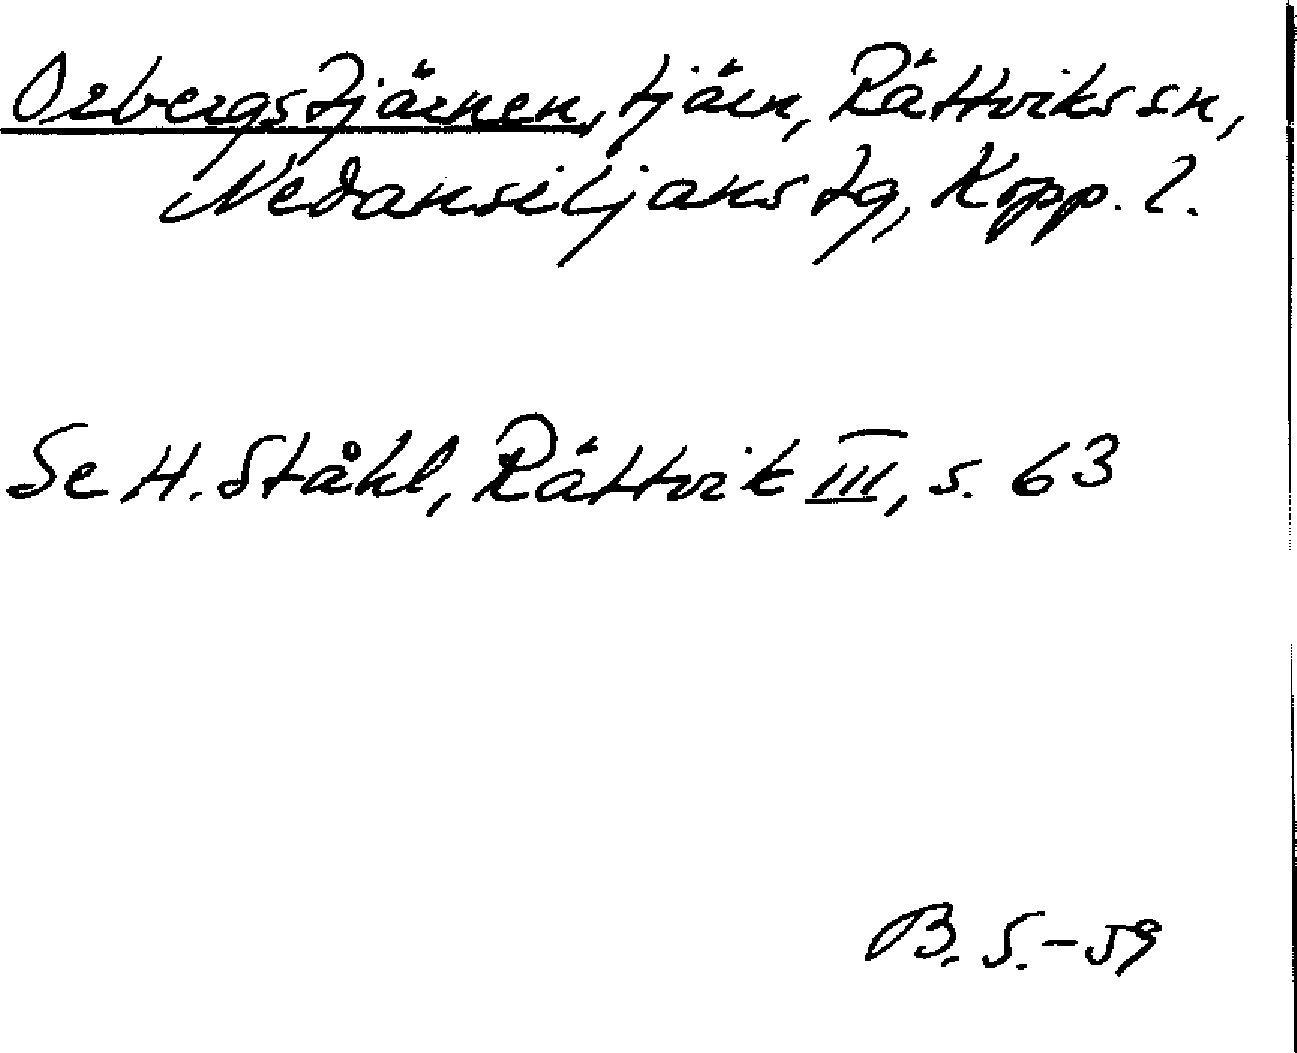 Orbergstjärnen, tjärn, Rättviks sn,
Nedansiljans tg, Kopp. l.
Se H. Ståhl, Rättvik III, s. 63
B. S. - 59